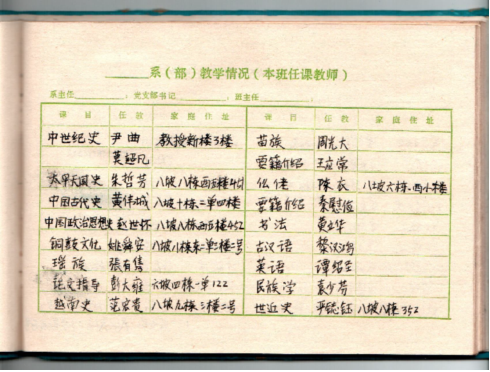 系（部）教学情况（本班任课教师）
系主任 ，党支部书记 ，班主任 。
课目 任教 家庭住址 课目 任教 家庭住址
中世纪史 尹曲 教授新楼3楼 苗族 周光大
莫超凡 要籍介绍 王启常
太平天国史 朱哲芳 八坡八栋西 仫佬 陈衣 八坡六栋西小楼
中国古代史 黄伟城 八坡十栋二单四楼 要籍介绍 秦慰俭
中国政治思想史 赵世怀 八坡八栋西 452 书法 黄立华
铜鼓文化 姚舜安 八坡八栋东一单2号 古汉语 黎汉鸿
瑶族 張有隽 英语 谭绍兰
论文指导 彭大雍 六坡四栋一单122 民族学 袁少芬
越南史 范宏贵 八坡九栋三楼二号 世近史 八坡八栋352